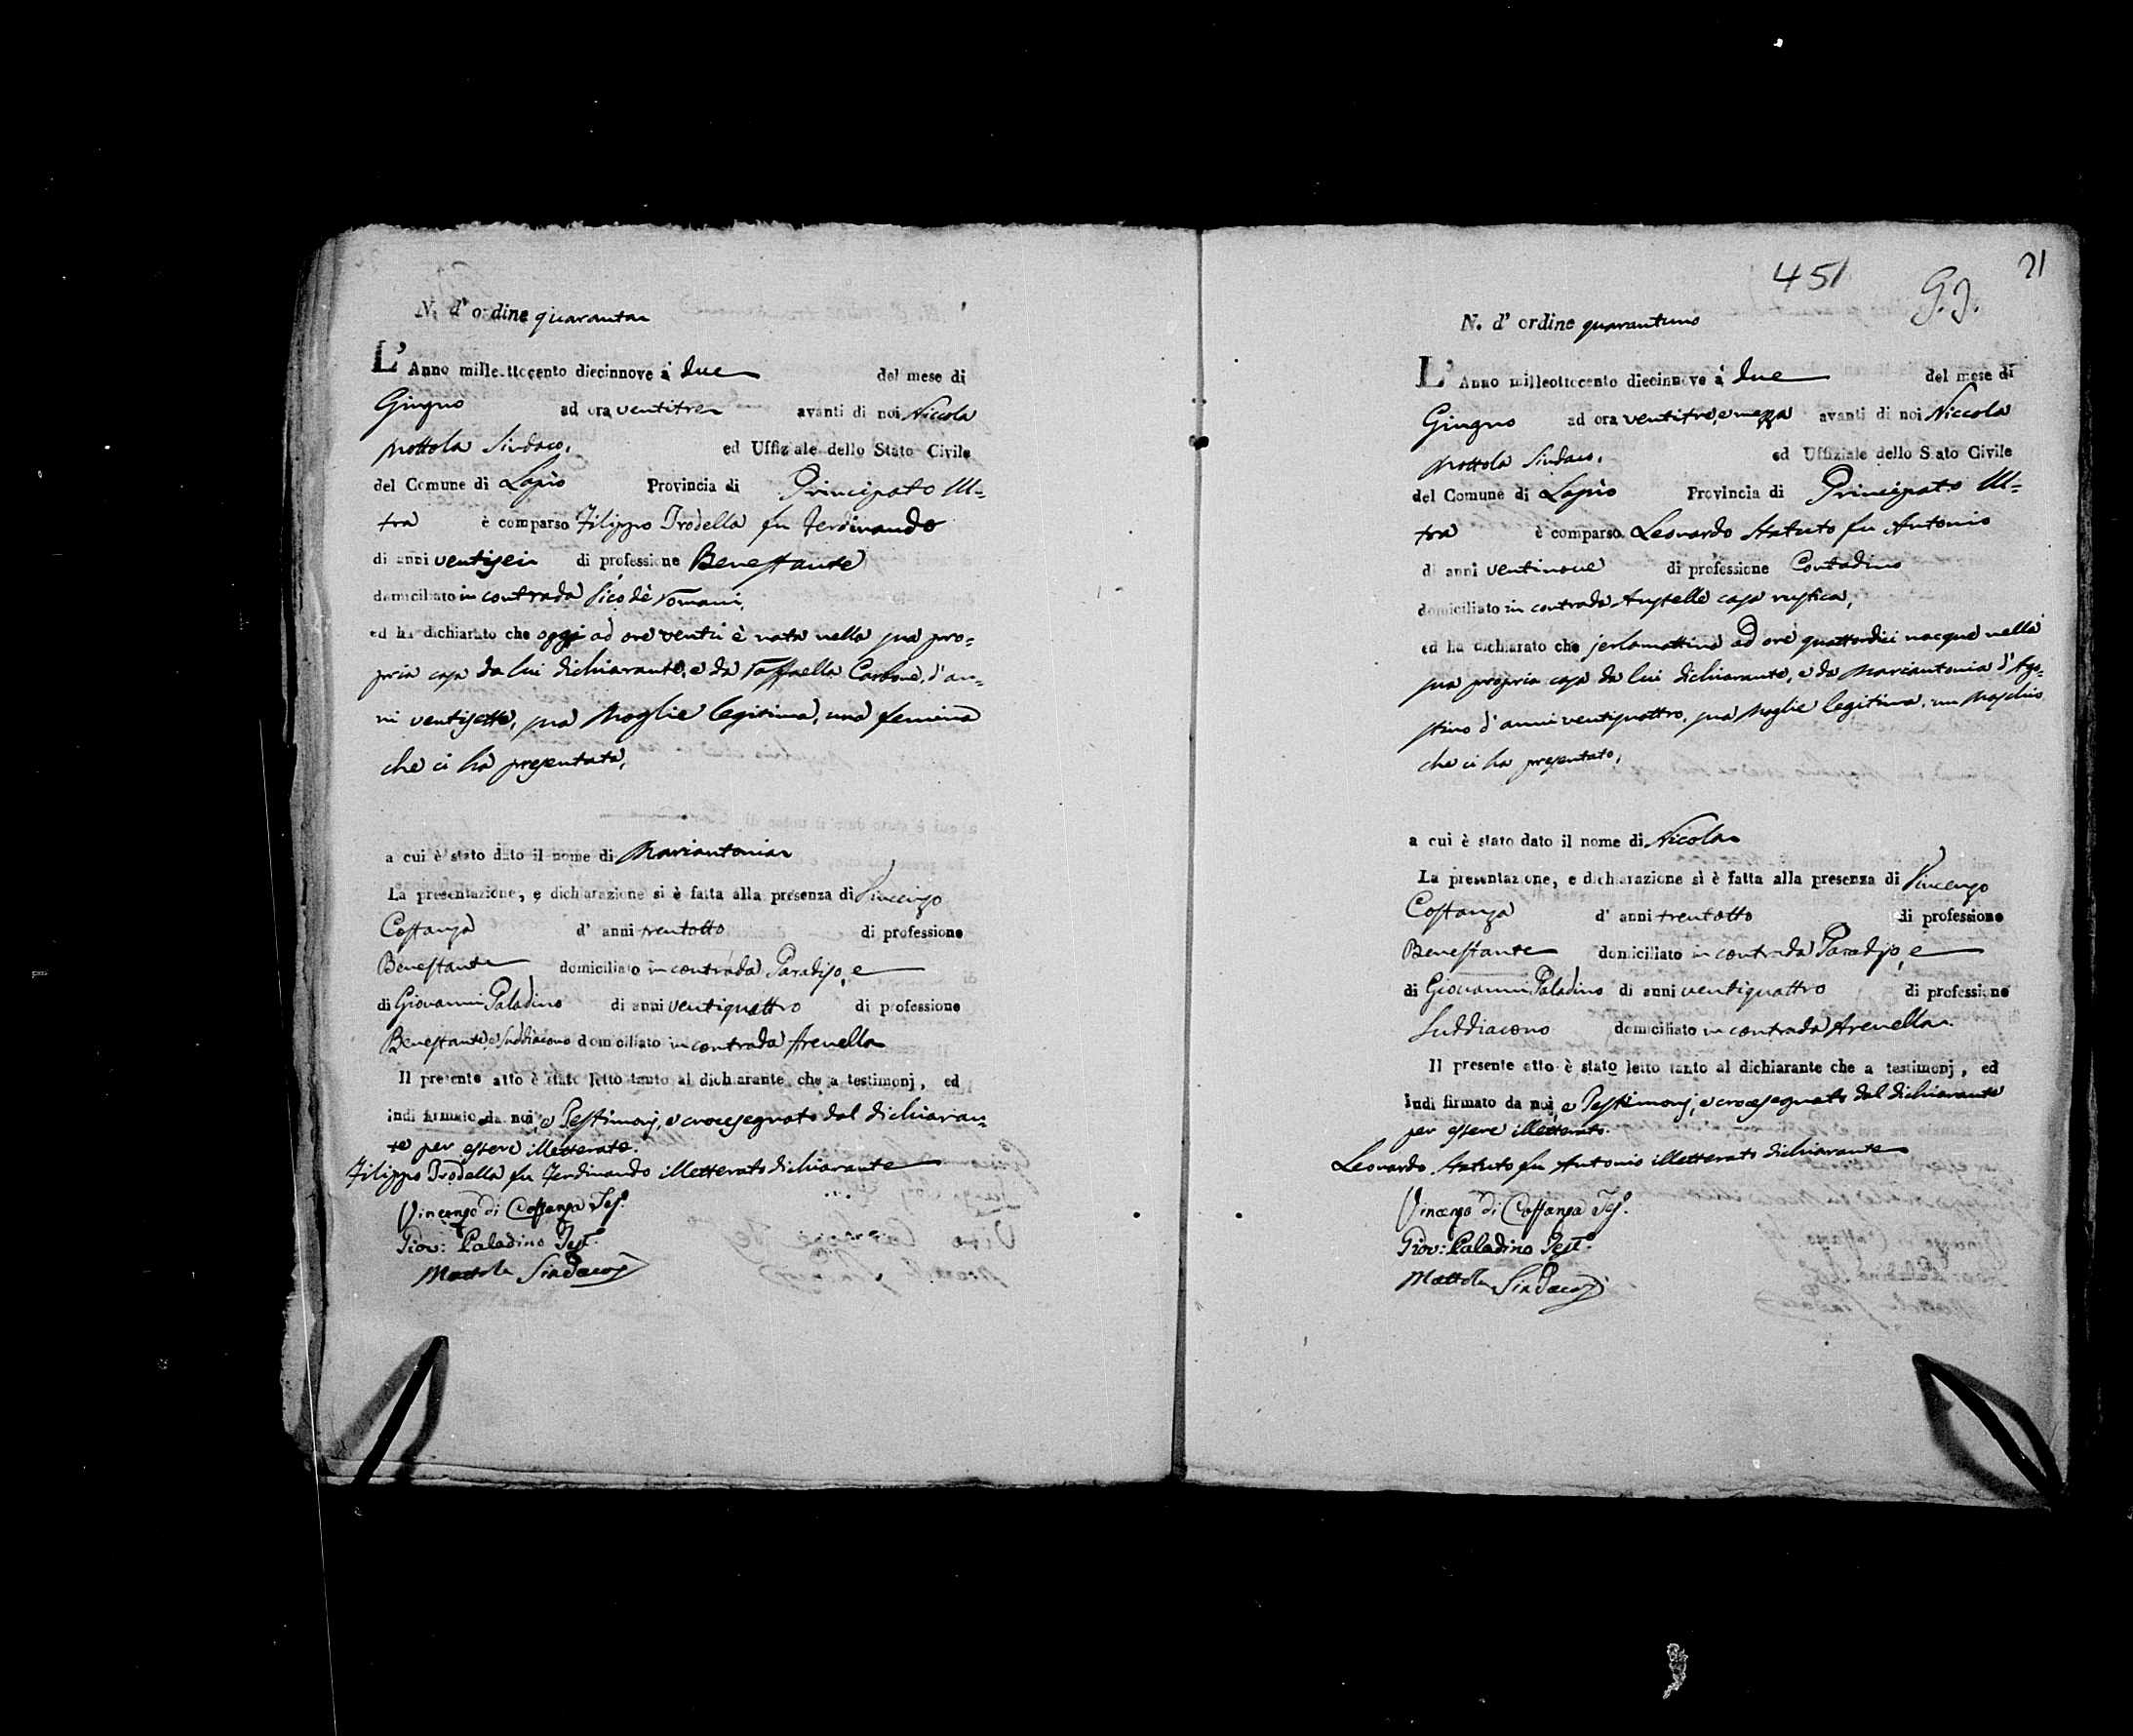 N. d' ordine quaranta
L' Anno milleottocento diecinnove à due del mese di
Giugno ad ora ventitre avanti di noi Niccola
Mottola Sindaco, ed Uffiziale dello Stato Civile
del Comune di Lapio Provincia di Principato Ul=
tra è comparso Filippo Trodella fu Ferdinando
di anni ventisei di professione Benestante
domiciliato in contrada Vico de Romani,
ed ha dichiarato che oggi ad ore venti è nata nella sua pro=
pria casa da lui dichiarante, e da Raffaella Carbone, d'an=
ni ventisette, sua Moglie legitima, una femina
che ci ha presentata,
a cui è stato dato il nome di Mariantonia
La presentazione, e dichiarazione si è fatta alla presenza di Vincenzo
Costanza d' anni trentotto di professione
Benestante domiciliato in contrada Paradiso, e
di Giovanni Paladino di anni ventiquattro di professione
Benestante, e Suddiacono domiciliato in contrada Arenella
Il presente atto è stato letto tanto al dichiarante che a testimonj, ed
indi firmato da noi, e Testimonj, e crocesegnato dal dichiaran=
te per essere illetterato.
Filippo Trodella fu Ferdinando illetterato dichiarante
Vincenzo di Costanza Tes.º
Giov: Paladino Test.º
Mottola Sindaco
451
G.J.
21
N. d' ordine quarantuno
L' Anno milleottocento diecinnove à due del mese di
Giugno ad ora ventitre, e mezza avanti di noi Niccola
Mottola Sindaco, ed Uffiziale dello Stato Civile
del Comune di Lapio Provincia di Principato Ul=
tra è comparso Leonardo Statuto fu Antonio
di anni ventinove di professione Contadino
domiciliato in contrada Austelle casa rustica,
ed ha dichiarato che jerlamattina ad ore quattordici nacque nella
sua propria casa da lui dichiarante, e da Mariantonia d'Ago=
stino d'anni ventiquattro, sua Moglie legitima, un Maschio
che ci ha presentato,
a cui è stato dato il nome di Nicola
La presentazione, e dichiarazione si è fatta alla presenza di Vincenzo
Costanza d' anni trentotto di professione
Benestante domiciliato in contrada Paradiso, e
di Giovanni Paladino di anni ventiquattro di professione
Suddiacono domiciliato in contrada Arenella.
Il presente atto è stato letto tanto al dichiarante che a testimonj, ed
indi firmato da noi, e Testimonj, e crocesegnato dal dichiarante
per essere illetterato.
Leonardo Statuto fu Antonio illetterato dichiarante
Vincenzo di Costanza Tes.º
Giov: Paladino Test.º
Mottola Sindaco